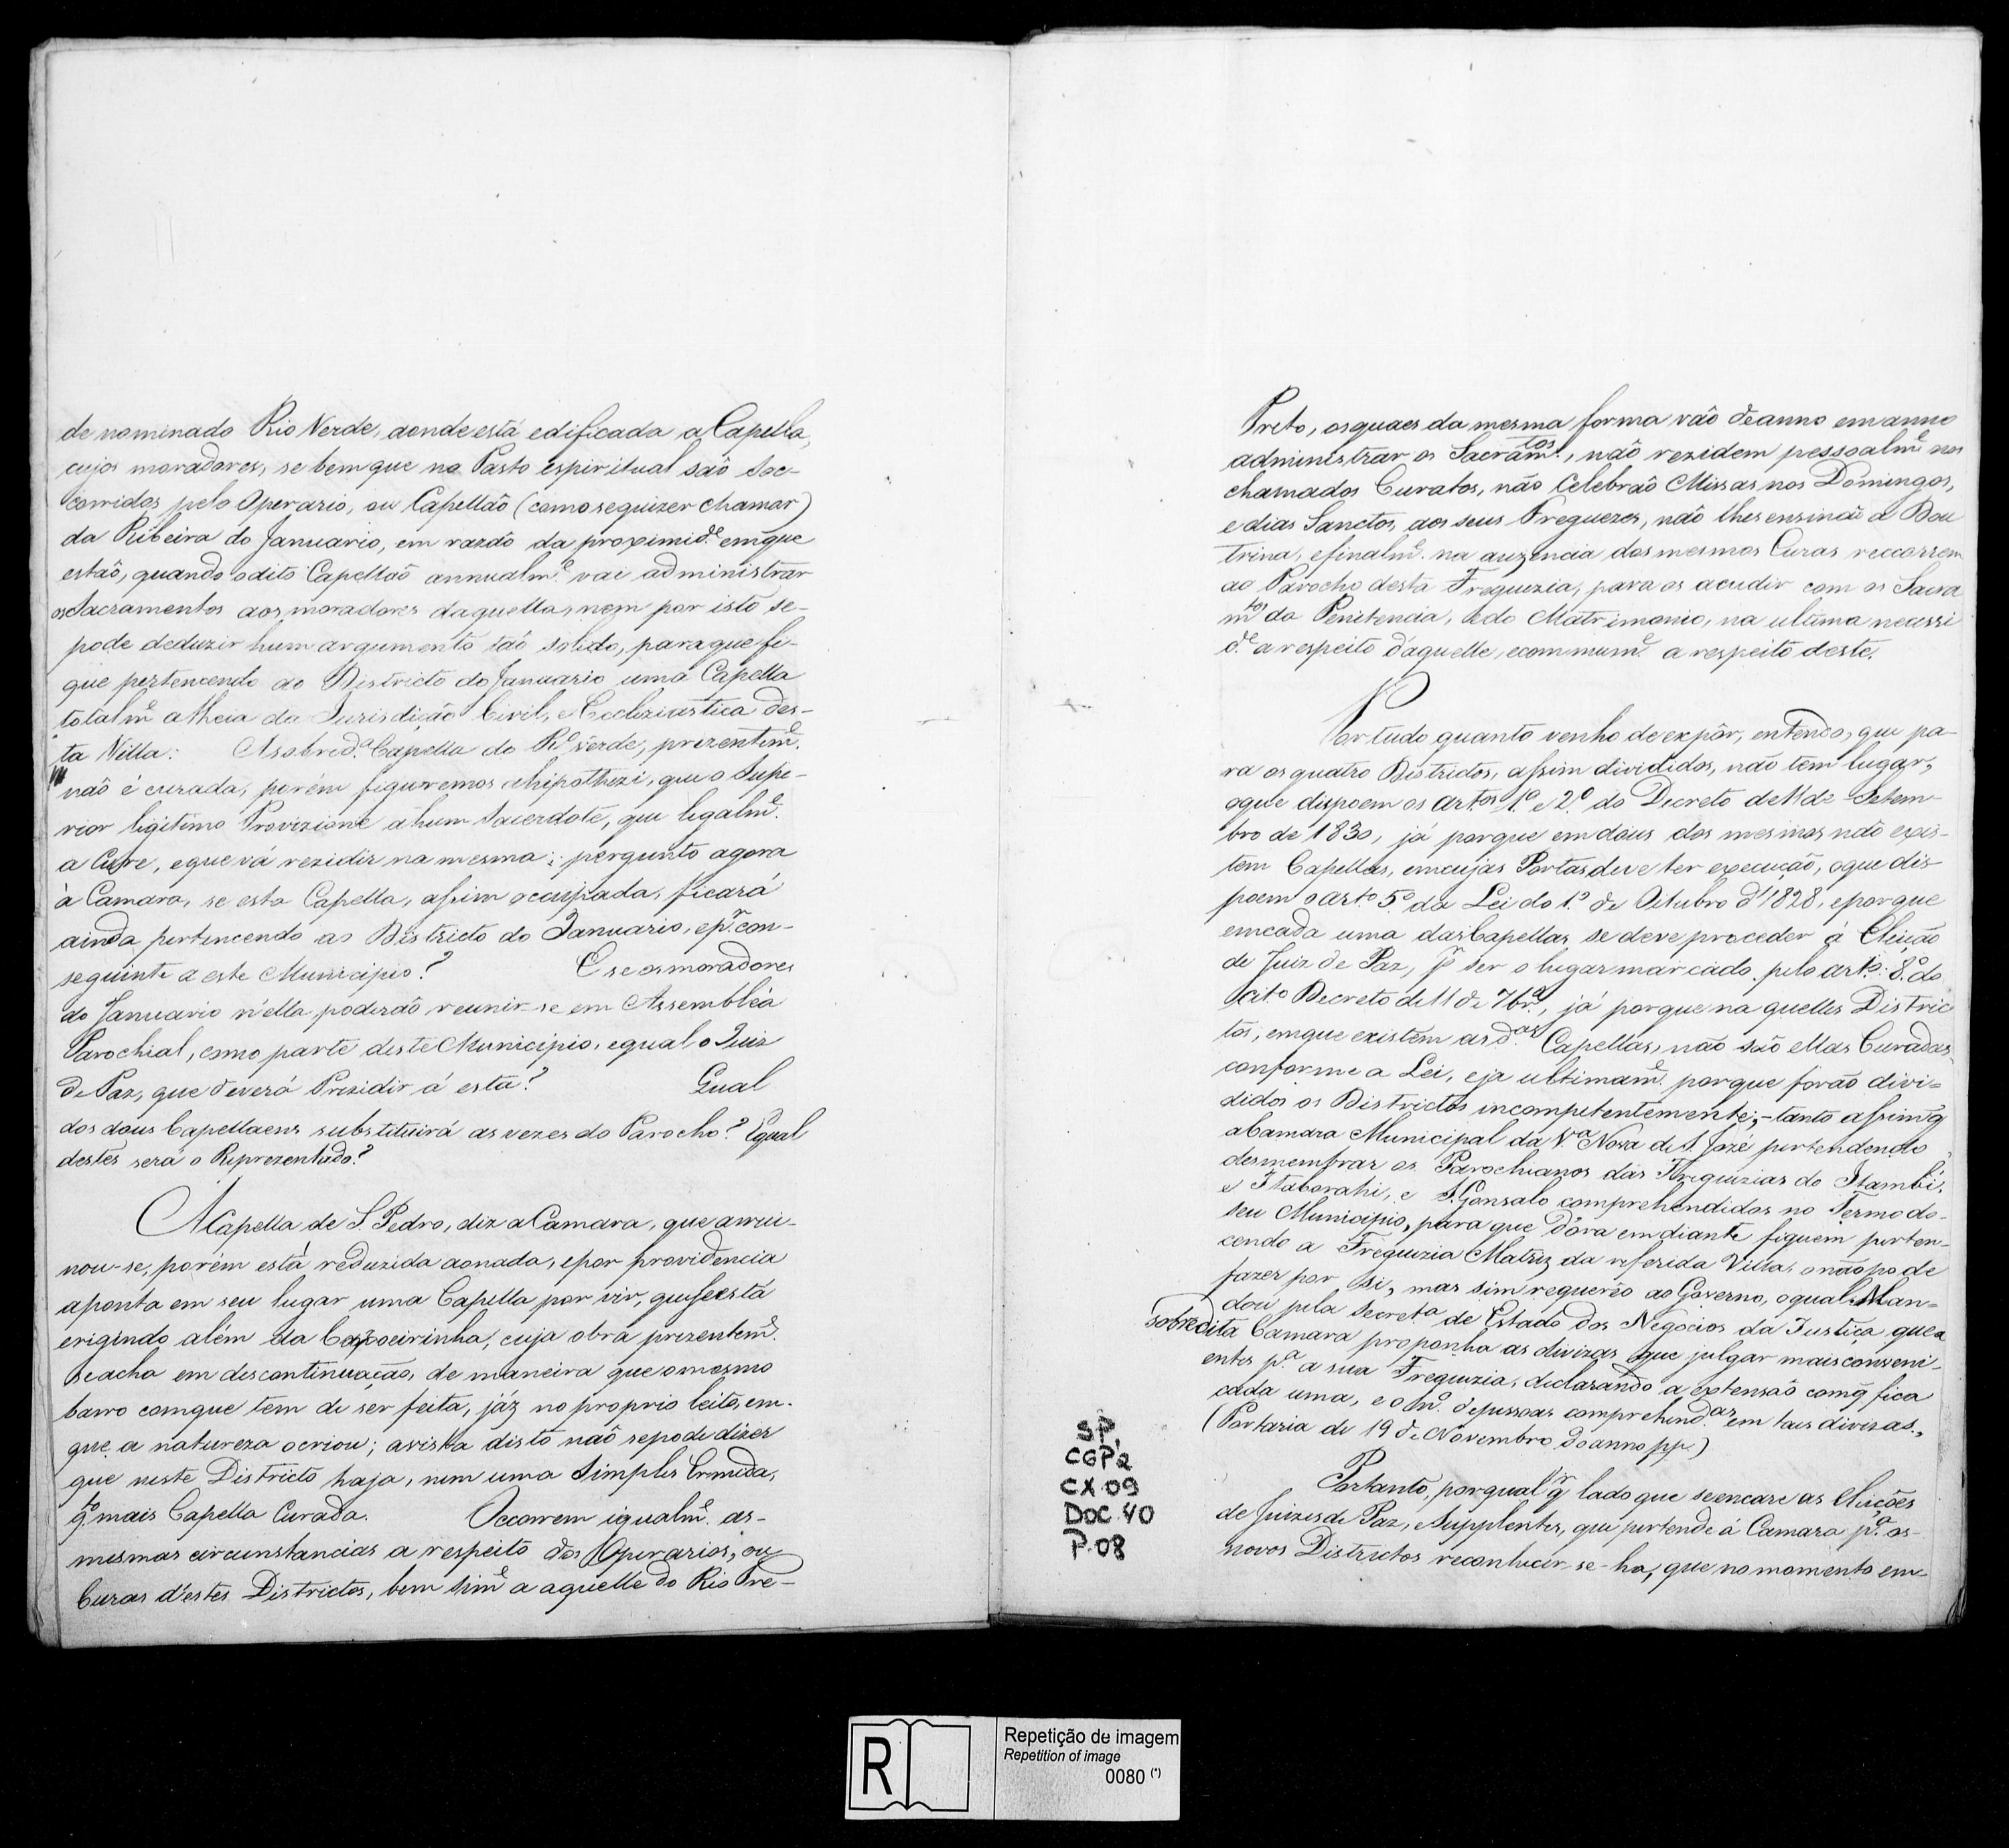 de nominado Rio Verde, aonde está edificada a Capella,
cujos moradores, se bem que no Pasto espiritual saõ Soc-
corridos pelo Operario, ou Capellaõ (como se quizer chamar)
da Ribeira do Januario, em razaõ da proximid.e em que
estaõ, quando o dito Capellaõ annualm.e vai administrar
os Sacramentos aos moradores daquella, nem por isto se-
pode deduzir hum argumento taõ solido, para que fi-
que pertencendo ao Districto do Januario uma Capella
totalm.e alheia da Jurisdição Civil, e Ecclesiastica des-
ta Villa: A sobred.a Capella do R.o verde, prezentem.e
naõ é curada, porém figuremos a hipothezi, que o Supe-
rior ligitimo Provizione á hum Sacerdote, que legalm.e
a Cure, e que vá rezidir na mesma; pergunto agora
à Camara, se esta Capella, assim occupada, ficará
ainda pertencendo ao Districto do Januario, e p.r con-
seguinte a este Municipio? E se os moradores
do Januario n'ella poderão reunir-se em Assembléa
Parochial, como parte deste Municipio, e qual o Juiz
de Paz, que deverá Prezidir á esta? Qual
dos dous Capellaens substituirá as vezes do Parocho? E qual
destes será o Reprezentado?
A Capella de S. Pedro, diz a Camara, que arrui-
nou-se, porém está reduzida aonada, e por providencia
aponta em seu lugar uma Capella por vir, que se está
erigindo além da Capoeirinha, cuja obra prezentem.e
se acha em descontinuação, de maneira que o mesmo
barro com que tem de ser feita, jáz no proprio leito, em-
que a natureza o criou; a vista disto naõ se pode dizer
que neste Districto haja, nem uma Simples Ermida,
q.to mais Capella Curada. Occorrem igualm.e as-
mesmas circunstancias a respeito dos Operarios, ou
Curas d'estes Districtos, bem sim.e a aquelle do Rio Pre-
Preto, os quaes da mesma forma vão de anno em anno
administrar os Sacram.tos, naõ rezidem pessoalm.e nos
chamados Curatos, não Celebraõ Missas nos Domingos,
e dias Sanctos, aos seus Freguezes, naõ lhes ensinaõ a Dou
trina, e finalm.e na auzencia dos mesmos Curas reccorrem
ao Parocho desta Freguezia, para os acudir com os Sacra
m.tos da Penitencia, e do Matrimonio, na ultima necessi
d.e a respeito d'aquelle, e commum.e a respeito deste.
Por tudo quanto venho de expôr, entendo, que pa-
ra os quatro Districtos, assim divididos, não tem lugar,
o que dispoem os art.os 1.o e 2.o do Decreto de 11 de Setem-
bro de 1830, já porque em dous dos mesmos naõ exis-
tem Capellas, em cujas Portas deve ter execução, o que dis-
poem o art.o 5.o da Lei do 1.o de Oitubro d'1828, e porque
em cada uma das Capellas se deve proceder á Eleição
de Juiz de Paz, p.r ser o lugar marcado pelo art.o: 8.o do
cit.o Decreto de 11 de 7br.o, já porque na quelles Distric
tos, em que existem as d.as Capellas, não são ellas Curadas
conforme a Lei, e ja ultimam.e porque forão divi-
didos os Districtos incompetentemente; - tanto assim q̃
a Camara Municipal da V.a Nova de S. Jozé pertendendo
desmembrar os Parochianos das Freguizias do Itambí,
e Itaborahi, e S. Gonsalo comprehendidos no Termo do-
seu Municipio, para que d'ora em diante fiquem perten-
cendo a Freguizia Matriz da referida Villa, o não pode
fazer por si, mas sim requerêo ao Governo, o qual Man-
dou pela Secret.a de Estado dos Negocios da Justiça que a
sobredita Camara proponha as divizas que julgar mais conveni-
entes p.a a sua Freguizia, declarando a extensaõ com q̃ fica
cada uma, e o n.o de pessoas comprehend.as em taes divizas.,
(Portaria de 19 de Novembro do anno pp.)
Portanto, por qual q.r lado que se encare as Eleições
de Juizes de Paz, e Supplentes, que pertende á Camara p.a os-
novos Districtos reconhecer-se-ha, que no momento em-
SP,
CGP2
CX 09
DOC.40
P.08
R
Repetição de imagem
Repetition of image
0080 (*)